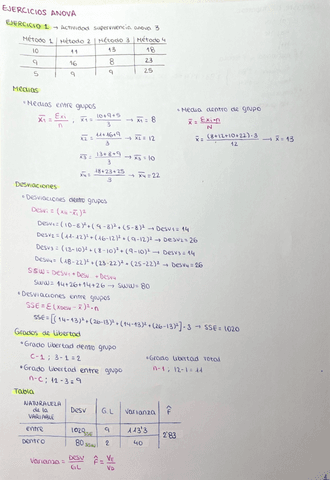 EJERCICIOS ANOVA
EJERCICIO 1 → Actividad supervivencia anova 3
Método 1 | Método 2 | Método 3 | Método 4
10 | 11 | 13 | 18
9 | 16 | 8 | 23
5 | 9 | 9 | 25
Medias
• Medias entre grupos
x̄₁ = Σxi / n ; x̄₁ = 10+9+5 / 3 → x̄₁ = 8
x̄₂ = 11+16+9 / 3 → x̄₂ = 12
x̄₃ = 13+8+9 / 3 → x̄₃ = 10
x̄₄ = 18+23+25 / 3 → x̄₄ = 22
• Media dentro de grupo
x̄ = Σxi·n / N
x̄ = (8+12+10+22)·3 / 12 → x̄ = 13
Desviaciones
• Desviaciones dentro grupos
Desv₁ = (x₁-x̄₁)²
Desv₁ = (10-8)² + (9-8)² + (5-8)² → Desv₁ = 14
Desv₂ = (11-12)² + (16-12)² + (9-12)² → Desv₂ = 26
Desv₃ = (13-10)² + (8-10)² + (9-10)² → Desv₃ = 14
Desv₄ = (18-22)² + (23-22)² + (25-22)² → Desv₄ = 26
SSW = Desv₁ + Desv₂ + Desv₄
SSW = 14+26+14+26 → SSW = 80
• Desviaciones entre grupos
SSE = Σ(xDesv - x̄)²·n
SSE = [(14-13)² + (26-13)² + (14-13)² + (26-13)²]·3 → SSE = 1020
Grados de libertad
• Grado libertad dentro grupo
C-1 ; 3-1 = 2
• Grado libertad entre grupo
n-c ; 12-3 = 9
• Grado libertad total
n-1 ; 12-1 = 11
Tabla
NATURALEZA de la VARIABLE | Desv | G.L | Varianza | F̂
entre | 1020 SSE | 9 | 113'3 | 2'83
Dentro | 80 SSW | 2 | 40
Varianza = Desv / G.L F̂ = VE / VD
1